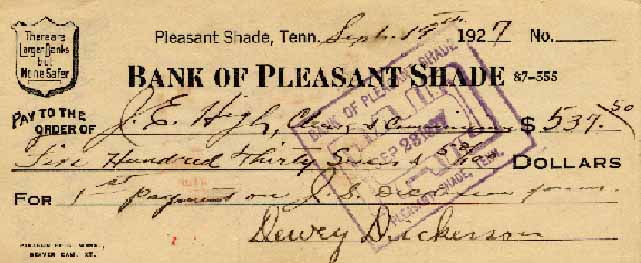 There are
Larger Banks
but
None Safer
Pleasant Shade, Tenn. Sept. 1927 No.
BANK OF PLEASANT SHADE 87-555
PAY TO THE
ORDER OF J. E. High, $ 537.50
Five Hundred Thirty Seven & 50/100 DOLLARS
FOR 1st payment on J. S. Dickerson farm.
Dewey Dickerson
BANK OF PLEASANT SHADE
PAID
SEP 28 1927
PLEASANT SHADE, TENN.
BEAVER DAM, KY.